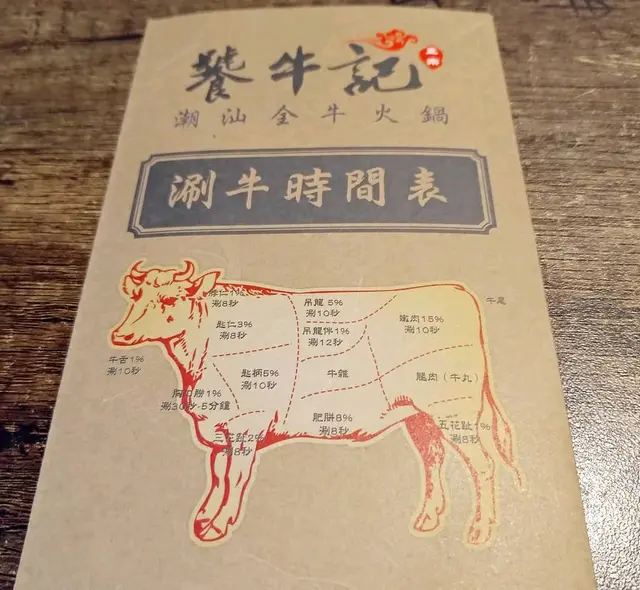 饕牛記
臺南
潮汕全牛火鍋
涮牛時間表
脖仁1%
涮8秒
匙仁3%
涮8秒
吊龍 5%
涮10秒
吊龍伴1%
涮12秒
嫩肉15%
涮10秒
牛尾
牛舌1%
涮10秒
匙柄5%
涮10秒
牛雜
龍肉（牛丸）
胸口朥1%
涮30秒-5分鐘
肥胼8%
涮8秒
三花趾2%
涮8秒
五花趾1%
涮8秒